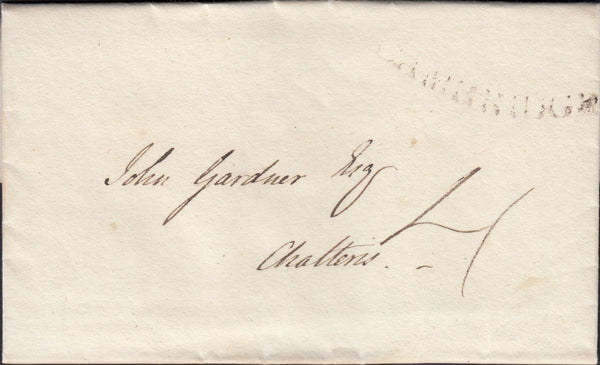 John Gardner Esq
Chatteris
4